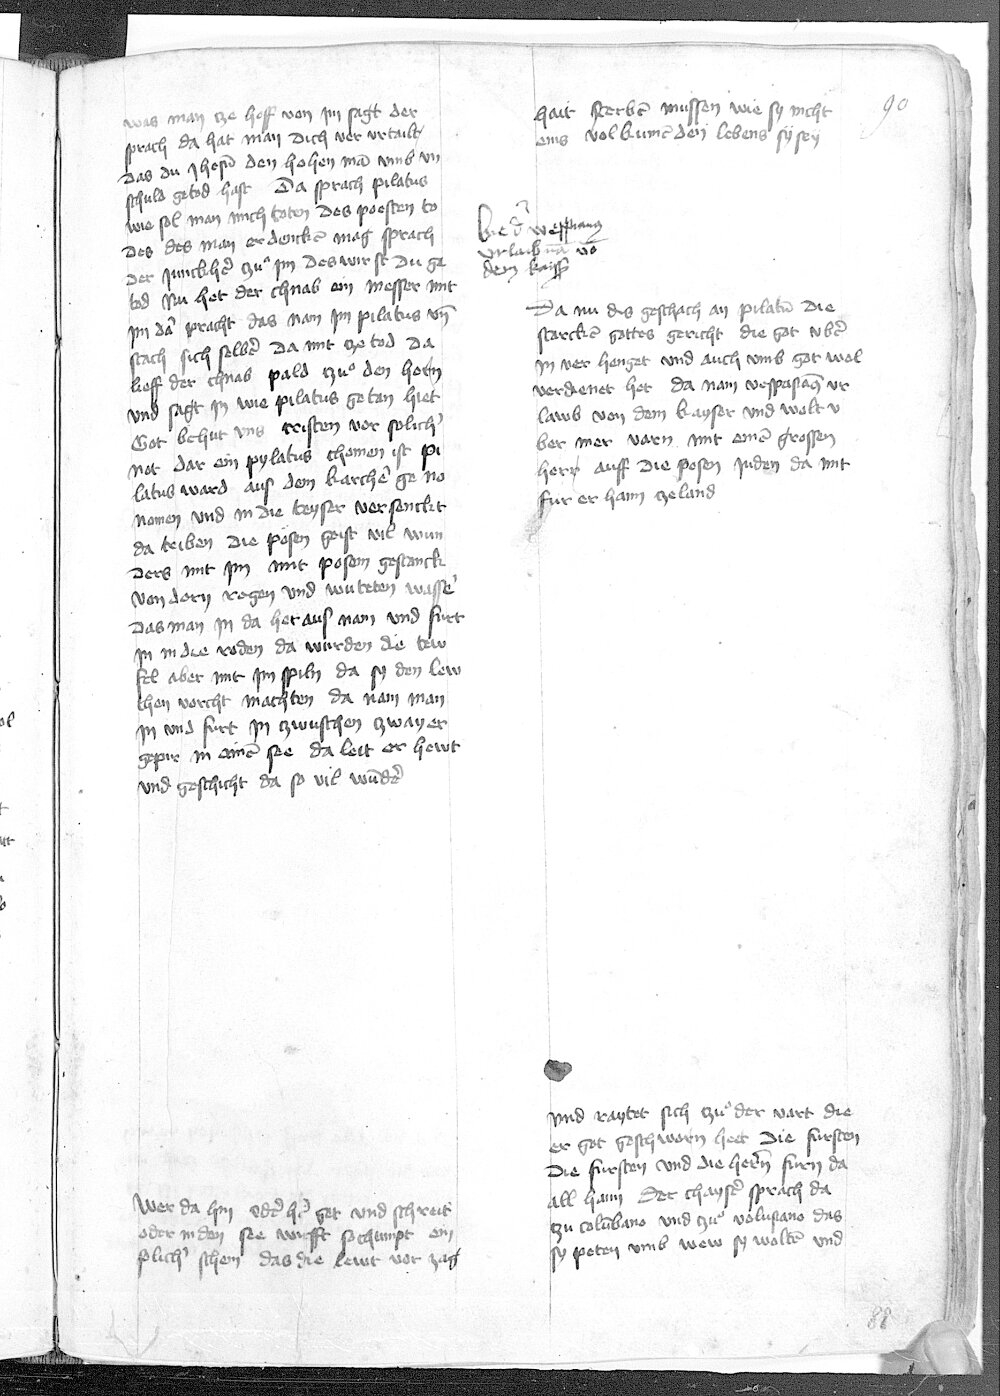 was man ze hoff von im sagt der
sprach da hat man dich ver vrtailt
das du Jhesū den hohen mā vmb vn
schuld getod hast Da sprach pilatus
wie sol man mich toten Des poesten to
des des man erdenckē mag sprach
der Junckhē zu im Des wirst du ge
tod Nu het der chnab ein messer mit
im dar pracht das nam im pilatus vn̄
stach sich selbē Da mit ze tod Da
lieff der chnab pald zu den herrn
vnd sagt in wie pilatus getan hiet
Got behut vns cristen vor solich
not dar ein pylatus chomen ist pi
latus ward aus dem karchē ge no
nomen vnd in die teyfer versenckt
da teiben die posen geist vil wun
ders mit im mit posem gestanck
von dorn regen vnd wuteten wasser
Das man in da heraus nam vnd furt
in in die roden da wurden die tew
fel aber mit im spiln da sy den lew
then vorcht machten da nam man
in vnd furt in zwischen zwayer
gepir in einē see da leit er hewt
vnd geschicht da so vil wūdē
Wer da hin oder hē get vnd schreit
oder in den see wirfft so chumpt ein
solich schein das die lewt ver zag
hait sterbē mussen wie sy nicht
eins volkumē den lebens sy sey
90
Wie d wespianus
vrlaub nā vō
dem kaiser
Da nu dis geschach an pilatū die
starckē gottes gericht die got vbē
in ver henget vnd auch vmb got wol
verdienet het da nam vespasiaꝰ vr
lawb von dem kayser vnd wolt v
ber mer varn mit einē grossen
herr auff die posen juden da mit
fur er haim ze land
vnd raytet sich zu der vart die
er got geschworn het Die fursten
Die fursten vnd die herrn furn da
all haim Der chaysē sprach da
zu columbano vnd zu volusiano das
sy peten vmb wew sy woltē vnd
88